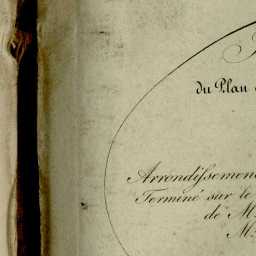 du Plan
Arrondissement
Terminé sur le
de M
M